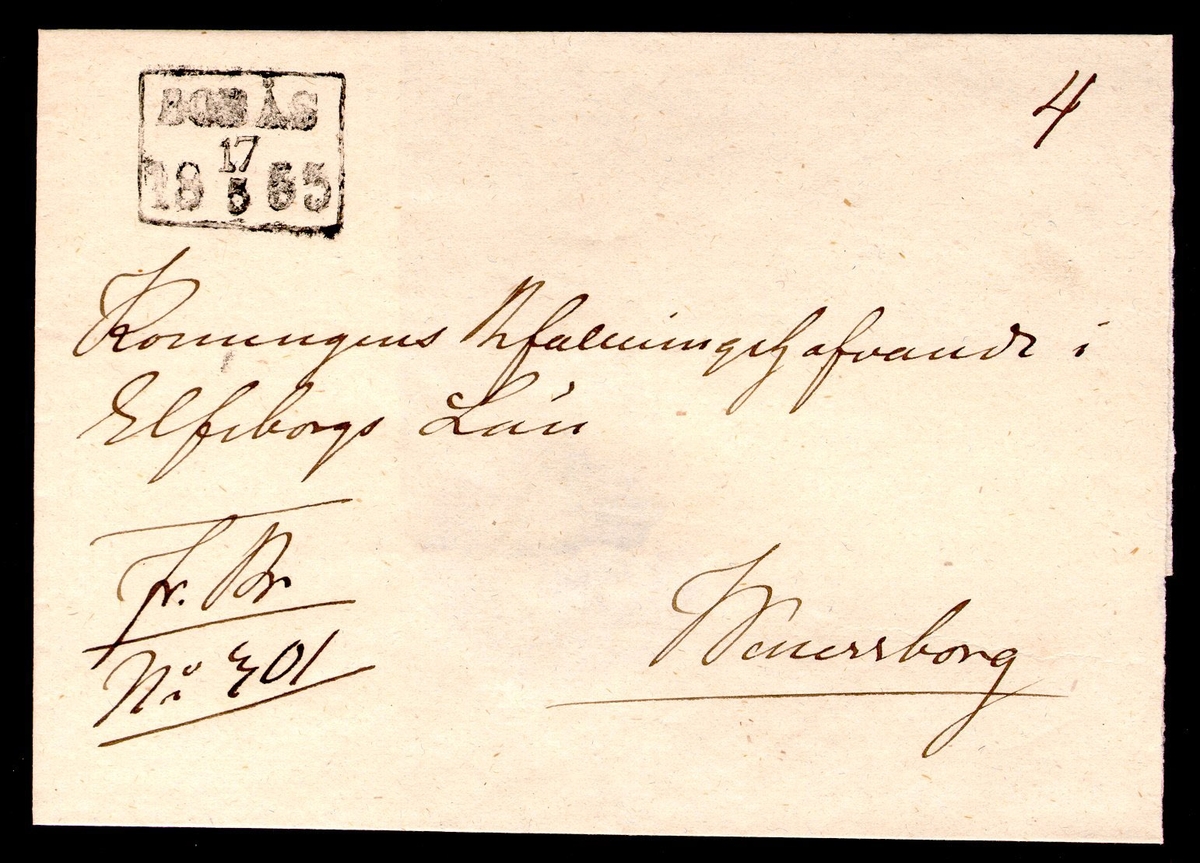 BORÅS
17
18 5 55
4
Konungens Befallningshafvande i
Elfsborgs Län
Fr. Br
No 401
Wenersborg